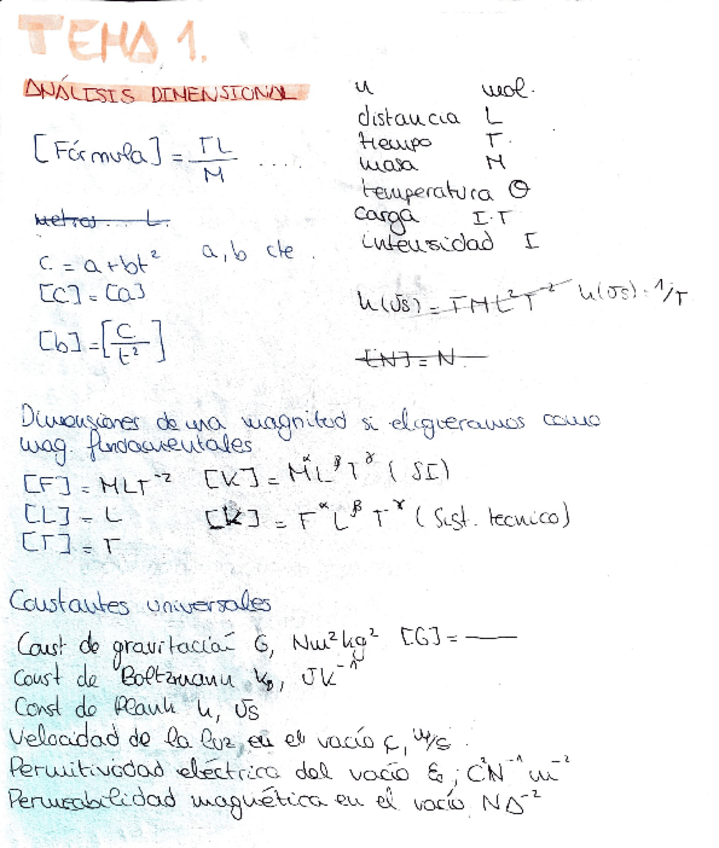 TEMA 1.
ANÁLISIS DIMENSIONAL
[Fórmula] = TL/M ....
metros... L.
C = a+bt² a, b cte.
[C] = [a]
[b] = [C/t²]
n mol.
distancia L
tiempo T.
masa M
temperatura Θ
carga I.T
intensidad I
h(Js) = TML²T⁻² h(Js): 1/T
[N] = N.
Dimensiones de una magnitud si eligieramos como
mag. fundamentales
[F] = MLT⁻² [K] = M^α L^β T^γ (SI)
[L] = L [K] = F^α L^β T^γ (Sist. tecnico)
[T] = T
Constantes universales
Const de gravitación G, Nm²kg² [G] = ——
Const de Boltzmann k_B, JK⁻¹
Const de Plank h, Js
Velocidad de la luz en el vacío c, m/s.
Permitividad eléctrica del vacío ε₀; C²N⁻¹m⁻²
Permeabilidad magnética en el vacío NA⁻²